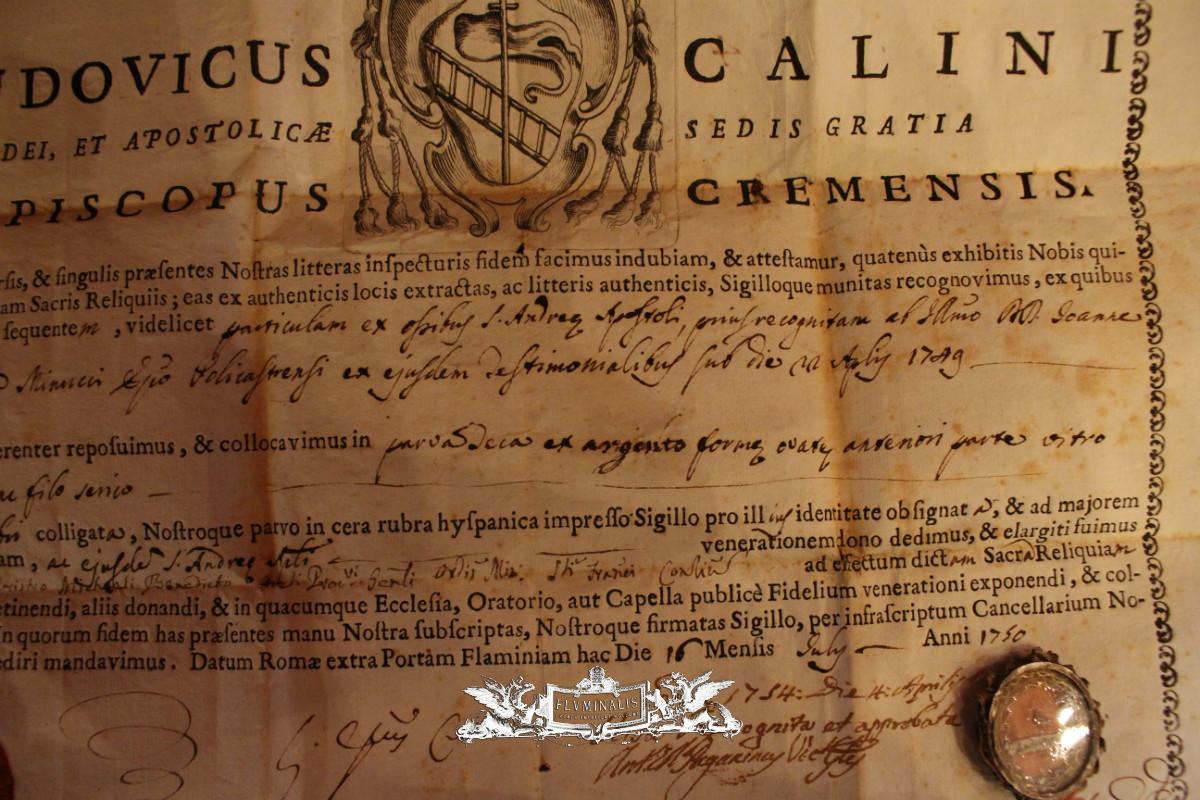 UDOVICUS CALINI
DEI, ET APOSTOLICÆ SEDIS GRATIA
PISCOPUS CREMENSIS.
rsis, & singulis præsentes Nostras litteras inspecturis fidem facimus indubiam, & attestamur, quatenùs exhibitis Nobis qui-
am Sacris Reliquiis; eas ex authenticis locis extractas, ac litteris authenticis, Sigilloque munitas recognovimus, ex quibus
sequentem, videlicet particulam ex ossibus S. Andreę Apostoli, prius recognitam ab Illmo RD. Joanne
Minucci Ejus Policastrensi ex ejusdem Testimonialibus sub die 22 Aplis 1749
erenter reposuimus, & collocavimus in parva Deca ex argento formę ovatę anteriori parte vitro
filo serico
colligata, Nostroque parvo in cera rubra hyspanica impresso Sigillo pro ill ius identitate obsignat a, & ad majorem
am, ac ejusdem S. Andreę venerationem dono dedimus, & elargiti fuimus
Benedicto Ordis Min: Sti Franci ad effectum dictam Sacra Reliquiam
etinendi, aliis donandi, & in quacumque Ecclesia, Oratorio, aut Capella publicè Fidelium venerationi exponendi, & col-
In quorum fidem has præsentes manu Nostra subscriptas, Nostroque firmatas Sigillo, per infrascriptum Cancellarium No-
ediri mandavimus. Datum Romæ extra Portam Flaminiam hac Die 16 Mensis July Anni 1750
1754: Die 4: Aprilis
ognita et approbata
FLVMINALIS